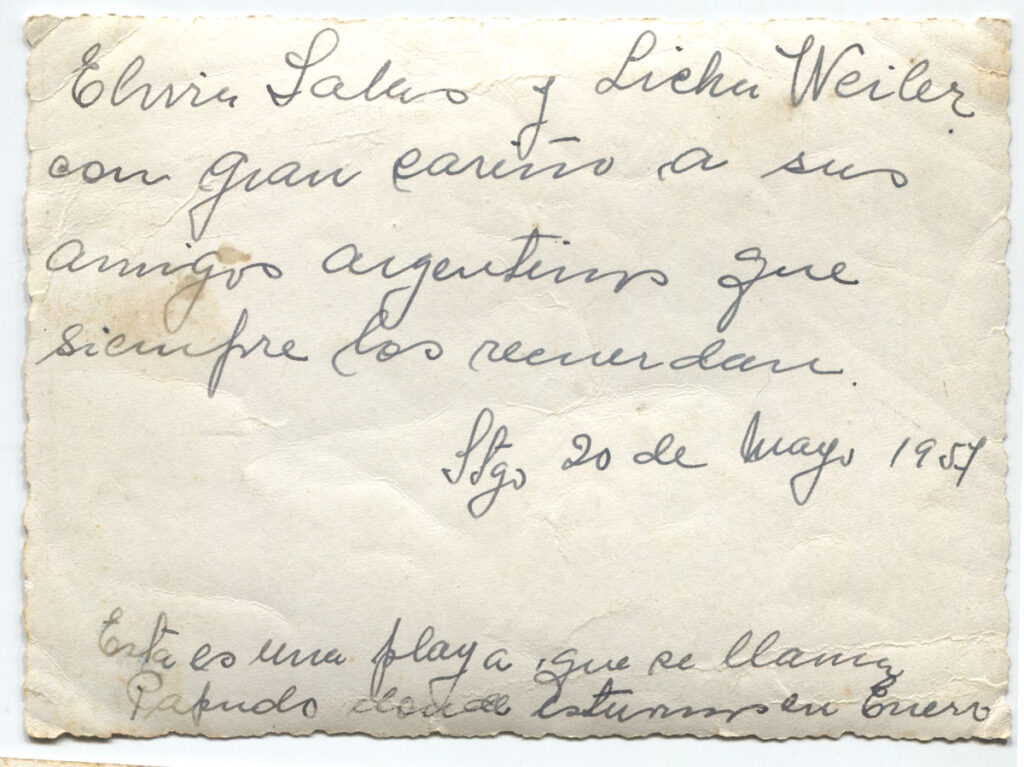 Elvira Salas y Licha Weiler
con gran cariño a sus
amigos argentinos que
siempre los recuerdan.
Stgo 20 de Mayo 1957
Esta es una playa que se llama
Papudo donde estuvimos en Enero